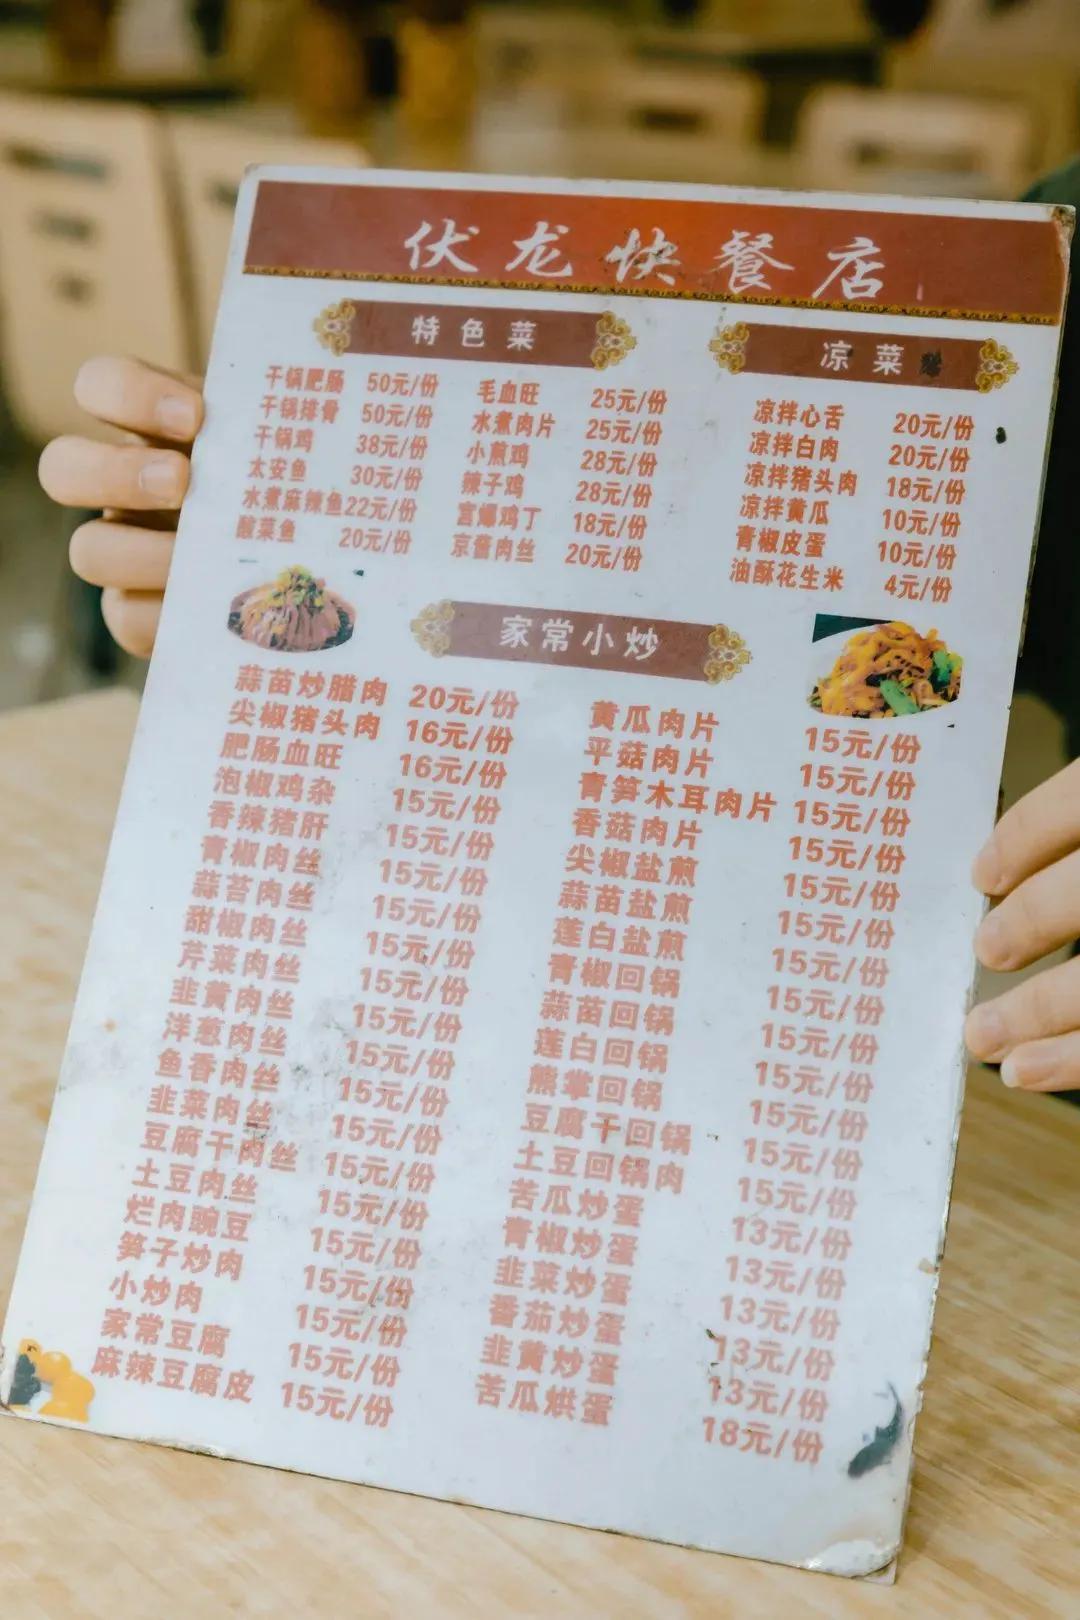 伏龙快餐店
特色菜
干锅肥肠 50元/份 毛血旺 25元/份
干锅排骨 50元/份 水煮肉片 25元/份
干锅鸡 38元/份 小煎鸡 28元/份
太安鱼 30元/份 辣子鸡 28元/份
水煮麻辣鱼 22元/份 宫爆鸡丁 18元/份
酸菜鱼 20元/份 京酱肉丝 20元/份
凉菜
凉拌心舌 20元/份
凉拌白肉 20元/份
凉拌猪头肉 18元/份
凉拌黄瓜 10元/份
青椒皮蛋 10元/份
油酥花生米 4元/份
家常小炒
蒜苗炒腊肉 20元/份
尖椒猪头肉 16元/份
肥肠血旺 16元/份
泡椒鸡杂 15元/份
香辣猪肝 15元/份
青椒肉丝 15元/份
蒜苔肉丝 15元/份
甜椒肉丝 15元/份
芹菜肉丝 15元/份
韭黄肉丝 15元/份
洋葱肉丝 15元/份
鱼香肉丝 15元/份
韭菜肉丝 15元/份
豆腐干肉丝 15元/份
土豆肉丝 15元/份
烂肉豌豆 15元/份
笋子炒肉 15元/份
小炒肉 15元/份
家常豆腐 15元/份
麻辣豆腐皮 15元/份
黄瓜肉片 15元/份
平菇肉片 15元/份
青笋木耳肉片 15元/份
香菇肉片 15元/份
尖椒盐煎 15元/份
蒜苗盐煎 15元/份
莲白盐煎 15元/份
青椒回锅 15元/份
蒜苗回锅 15元/份
莲白回锅 15元/份
熊掌回锅 15元/份
豆腐干回锅 15元/份
土豆回锅肉 15元/份
苦瓜炒蛋 13元/份
青椒炒蛋 13元/份
韭菜炒蛋 13元/份
番茄炒蛋 13元/份
韭黄炒蛋 13元/份
苦瓜烘蛋 18元/份